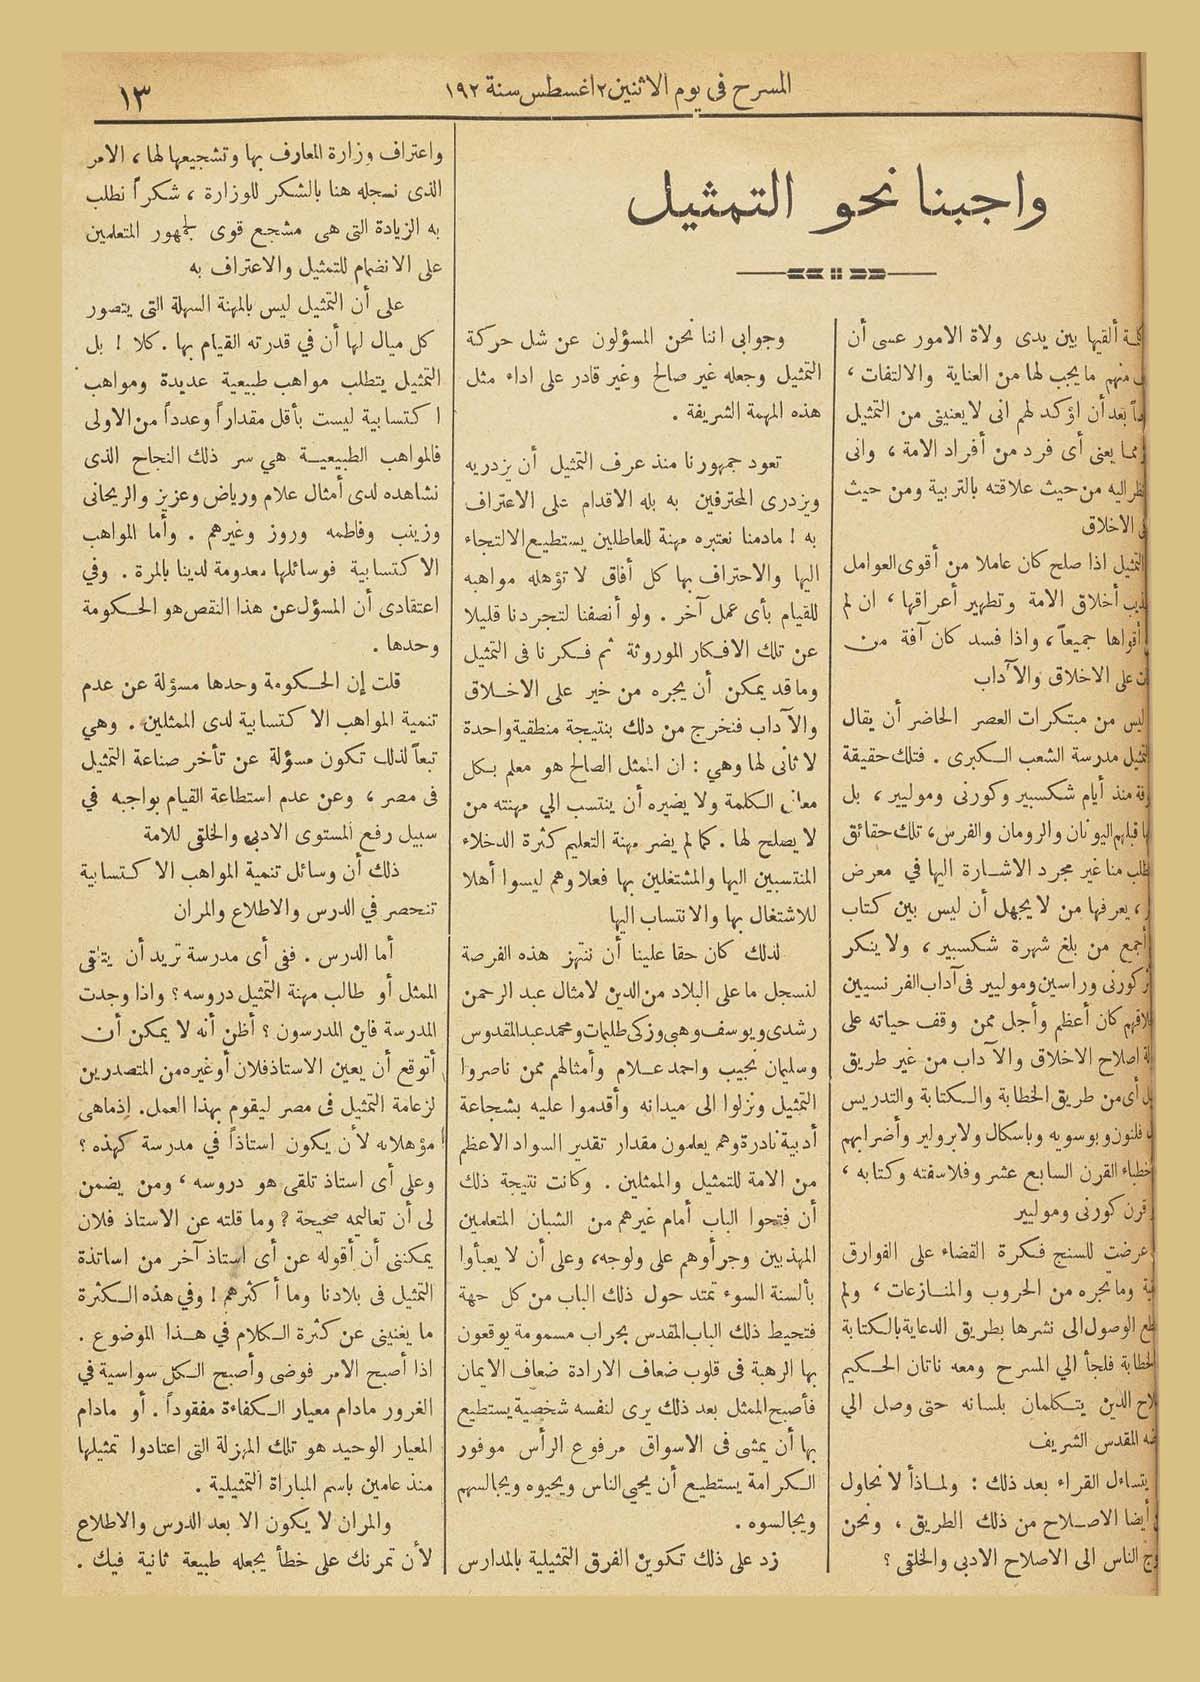 المسرح فى يوم الاثنين ٢ اغسطس سنة ١٩٢
١٣
واجبنا نحو التمثيل
كلمة ألقيها بين يدى ولاة الامور عسى أن
منهم ما يجب لها من العناية والالتفات ،
بعد أن اؤكد لهم انى لا يعنينى من التمثيل
مما يعنى أى فرد من أفراد الامة ، وانى
اليه من حيث علاقته بالتربية ومن حيث
الاخلاق
التمثيل اذا صلح كان عاملا من أقوى العوامل
أخلاق الامة وتطهير أعراقها ، ان لم
أقواها جميعاً ، واذا فسد كان آفة من
على الاخلاق والآداب
ليس من مبتكرات العصر الحاضر أن يقال
مدرسة الشعب الكبرى . فتلك حقيقة
منذ أيام شكسبير وكورنى وموليير ، بل
قبلهم اليونان والرومان والفرس، تلك حقائق
منا غير مجرد الاشارة اليها في معرض
، يعرفها من لا يجهل أن ليس بين كتاب
أجمع من بلغ شهرة شكسبير ، ولا ينكر
كورنى وراسين وموليير فى آداب الفرنسيين
كان أعظم وأجل ممن وقف حياته على
اصلاح الاخلاق والآداب من غير طريق
أى من طريق الخطابة والكتابة والتدريس
فلنون وبوسويه وباسكال ولابروليير وأضرابهم
خطباء القرن السابع عشر وفلاسفته وكتابه ،
قرن كورنى وموليير
عرضت للسنج فكرة القضاء على الفوارق
وما يجره من الحروب والمنازعات ، ولم
الوصول الى نشرها بطريق الدعاية بالكتابة
فلجأ الي المسرح ومعه ناتان الحكيم
الدين يتكلمان بلسانه حتى وصل الي
المقدس الشريف
يتساءل القراء بعد ذلك : ولماذا لا نحاول
أيضا الاصلاح من ذلك الطريق ، ونحن
الناس الى الاصلاح الادبى والخلقى ؟
وجوابى اننا نحن المسؤلون عن شل حركة
التمثيل وجعله غير صالح وغير قادر على اداء مثل
هذه المهمة الشريفة .
تعود جمهورنا منذ عرف التمثيل أن يزدريه
ويزدرى المحترفين به بله الاقدام على الاعتراف
به ! مادمنا نعتبره مهنة للعاطلين يستطيع الالتجاء
اليها والاحتراف بها كل أفاق لا تؤهله مواهبه
للقيام بأى عمل آخر . ولو أنصفنا لتجردنا قليلا
عن تلك الافكار الموروثة ثم فكرنا فى التمثيل
وما قد يمكن أن يجره من خير على الاخلاق
والآداب فنخرج من دلك بنتيجة منطقية واحدة
لا ثانى لها وهي : ان الممثل الصالح هو معلم بكل
معانى الكلمة ولا يضيره أن ينتسب الي مهنته من
لا يصلح لها . كما لم يضر مهنة التعليم كثرة الدخلاء
المنتسبين اليها والمشتغلين بها فعلا وهم ليسوا أهلا
للاشتغال بها والانتساب اليها
لذلك كان حقا علينا أن ننتهز هذه الفرصة
لنسجل ما على البلاد من الدين لامثال عبد الرحمن
رشدى ويوسف وهبى وزكى طليمات ومحمد عبد القدوس
وسليمان نجيب واحمد علام وأمثالهم ممن ناصروا
التمثيل ونزلوا الى ميدانه وأقدموا عليه بشجاعة
أدبية نادرة وهم يعلمون مقدار تقدير السواد الاعظم
من الامة للتمثيل والممثلين . وكانت نتيجة ذلك
أن فتحوا الباب أمام غيرهم من الشبان المتعلمين
المهذبين وجرأوهم على ولوجه، وعلى أن لا يعبأوا
بألسنة السوء تمتد حول ذلك الباب من كل جهة
فتحيط ذلك الباب المقدس بحراب مسمومة يوقعون
بها الرهبة فى قلوب ضعاف الارادة ضعاف الايمان
فأصبح الممثل بعد ذلك يرى لنفسه شخصية يستطيع
بها أن يمشى فى الاسواق مرفوع الرأس موفور
الكرامة يستطيع أن يحيي الناس ويحيوه ويجالسهم
ويجالسوه .
زد على ذلك تكوين الفرق التمثيلية بالمدارس
واعتراف وزارة المعارف بها وتشجيعها لها ، الامر
الذى نسجله هنا بالشكر للوزارة ، شكراً نطلب
به الزيادة التى هى مشجع قوى لجمهور المتعلمين
على الانضمام للتمثيل والاعتراف به
على أن التمثيل ليس بالمهنة السهلة التى يتصور
كل ميال لها أن في قدرته القيام بها . كلا ! بل
التمثيل يتطلب مواهب طبيعية عديدة ومواهب
اكتسابية ليست بأقل مقداراً وعدداً من الاولى
فالمواهب الطبيعية هي سر ذلك النجاح الذى
نشاهده لدى أمثال علام ورياض وعزيز والريحانى
وزينب وفاطمه وروز وغيرهم . وأما المواهب
الاكتسابية فوسائلها معدومة لدينا بالمرة . وفي
اعتقادى أن المسؤل عن هذا النقص هو الحكومة
وحدها .
قلت إن الحكومة وحدها مسؤلة عن عدم
تنمية المواهب الاكتسابية لدى الممثلين . وهي
تبعاً لذلك تكون مسؤلة عن تأخر صناعة التمثيل
فى مصر ، وعن عدم استطاعة القيام بواجبه في
سبيل رفع المستوى الادبى والخلقى للامة
ذلك أن وسائل تنمية المواهب الاكتسابية
تنحصر في الدرس والاطلاع والمران
أما الدرس . ففى أى مدرسة تريد أن يتلقى
الممثل أو طالب مهنة التمثيل دروسه ؟ واذا وجدت
المدرسة فاين المدرسون ؟ أظن أنه لا يمكن أن
أتوقع أن يعين الاستاذ فلان أو غيره من المتصدرين
لزعامة التمثيل فى مصر ليقوم بهذا العمل. إذ ماهى
مؤهلاته لأن يكون استاذاً في مدرسة كهذه ؟
وعلى أى استاذ تلقى هو دروسه ، ومن يضمن
لى أن تعاليمه صحيحة ؟ وما قلته عن الاستاذ فلان
يمكننى أن أقوله عن أى استاذ آخر من اساتذة
التمثيل فى بلادنا وما أكثرهم ! وفي هذه الكثرة
ما يغنينى عن كثرة الكلام في هذا الموضوع .
اذا أصبح الامر فوضى وأصبح الكل سواسية في
الغرور مادام معيار الكفاءة مفقوداً . أو مادام
المعيار الوحيد هو تلك المهزلة التى اعتادوا تمثيلها
منذ عامين باسم المباراة التمثيلية .
والمران لا يكون الا بعد الدرس والاطلاع
لأن تمرنك على خطأ يجعله طبيعة ثانية فيك .